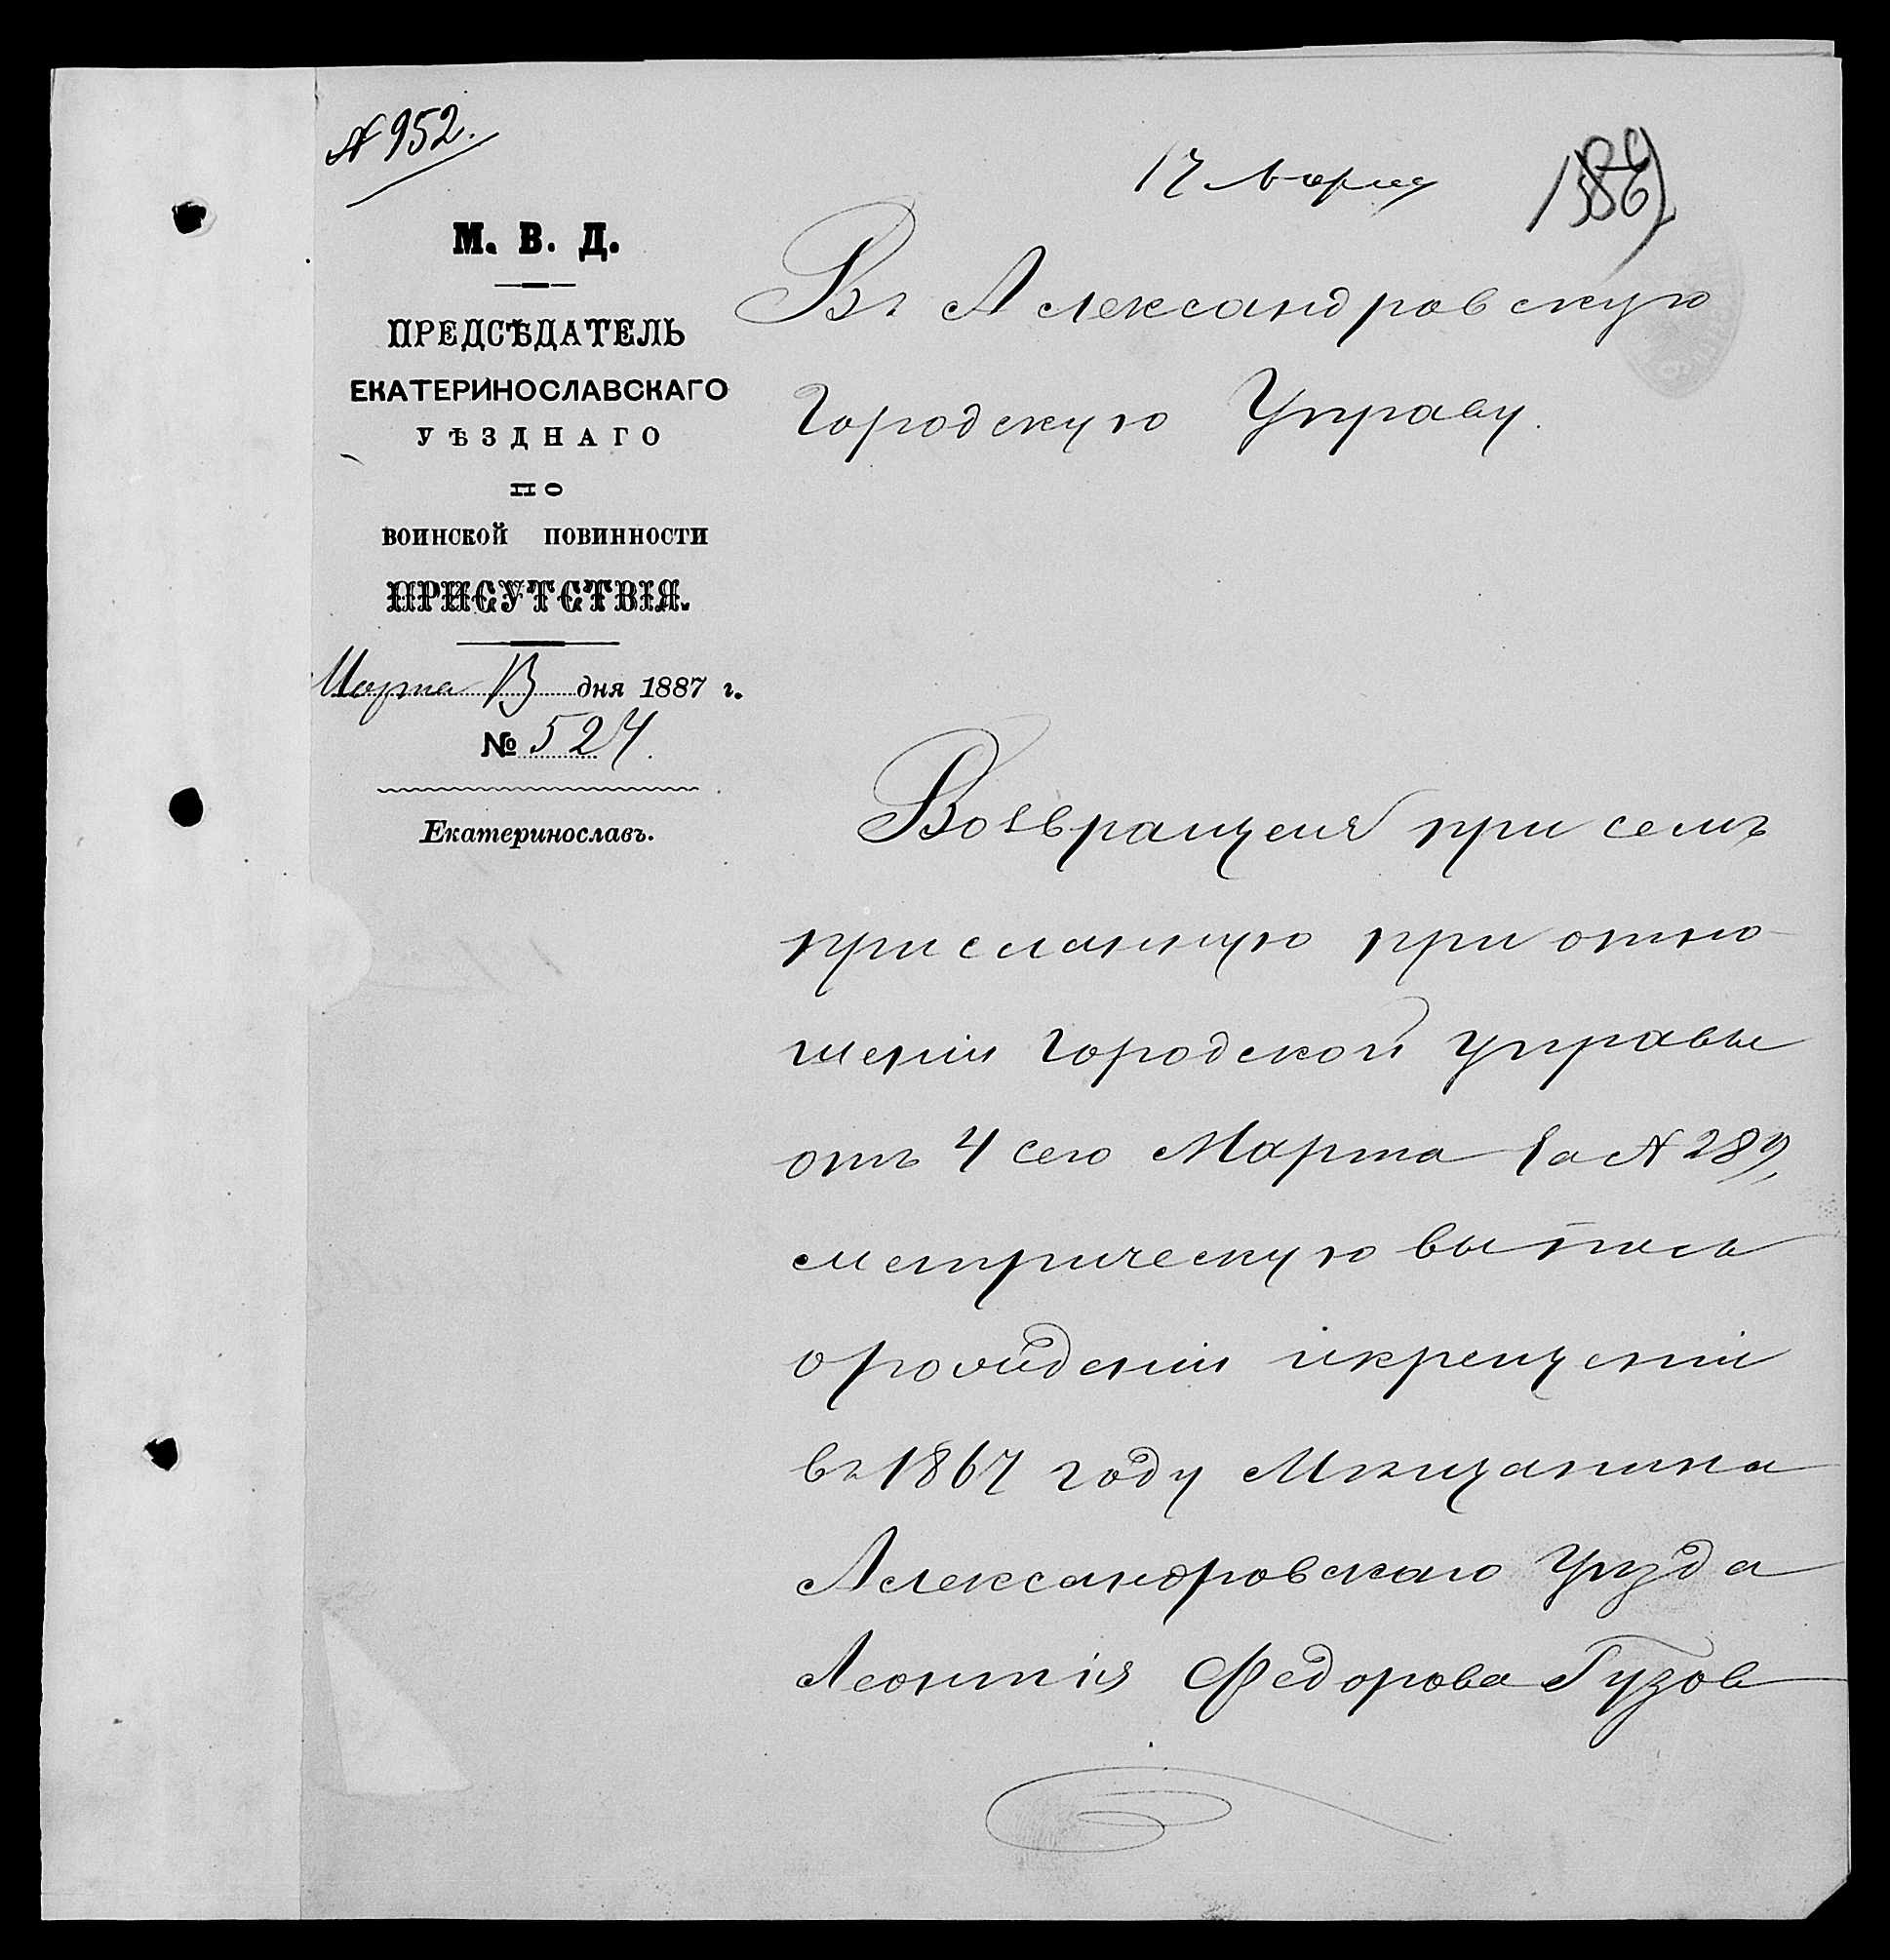 № 952.
17 Марта
М. В. Д.
ПРЕДСѢДАТЕЛЬ
ЕКАТЕРИНОСЛАВСКАГО
УѢЗДНАГО
ПО
ВОИНСКОЙ ПОВИННОСТИ
ПРИСУТСТВІЯ.
Марта 13 дня 1887 г.
№ 524.
Екатеринославъ.
Въ Александровскую
Городскую Управу.
Возвращая при семъ
присланную при отно-
шеніи Городской управы
отъ 4 сего Марта за № 289,
метрическую выпись
о рожденіи и крещеніи
въ 1867 году Мѣщанина
Александровскаго Уѣзда
Леонтія Федорова Гузов